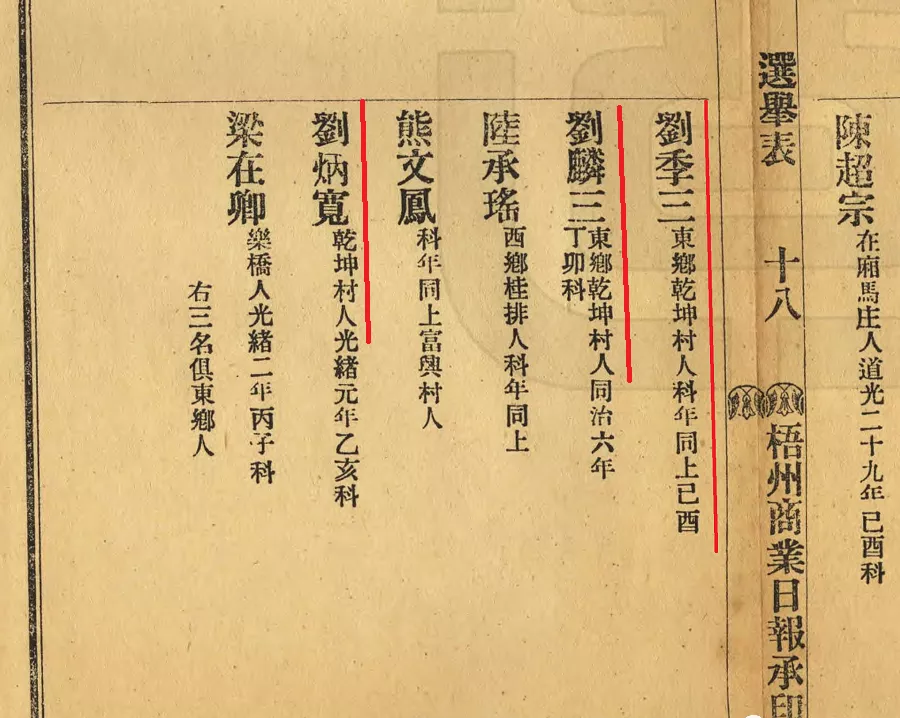 陳超宗 在廂馬庄人道光二十九年已酉科
選舉表 十八 梧州商業日報承印
劉季三 東鄉乾坤村人科年同上已酉
劉麟三 東鄉乾坤村人同治六年
丁卯科
陸承瑤 西鄉桂排人科年同上
熊文鳳 科年同上富興村人
劉炳寬 乾坤村人光緒元年乙亥科
梁在卿 樂橋人光緒二年丙子科
右三名俱東鄉人